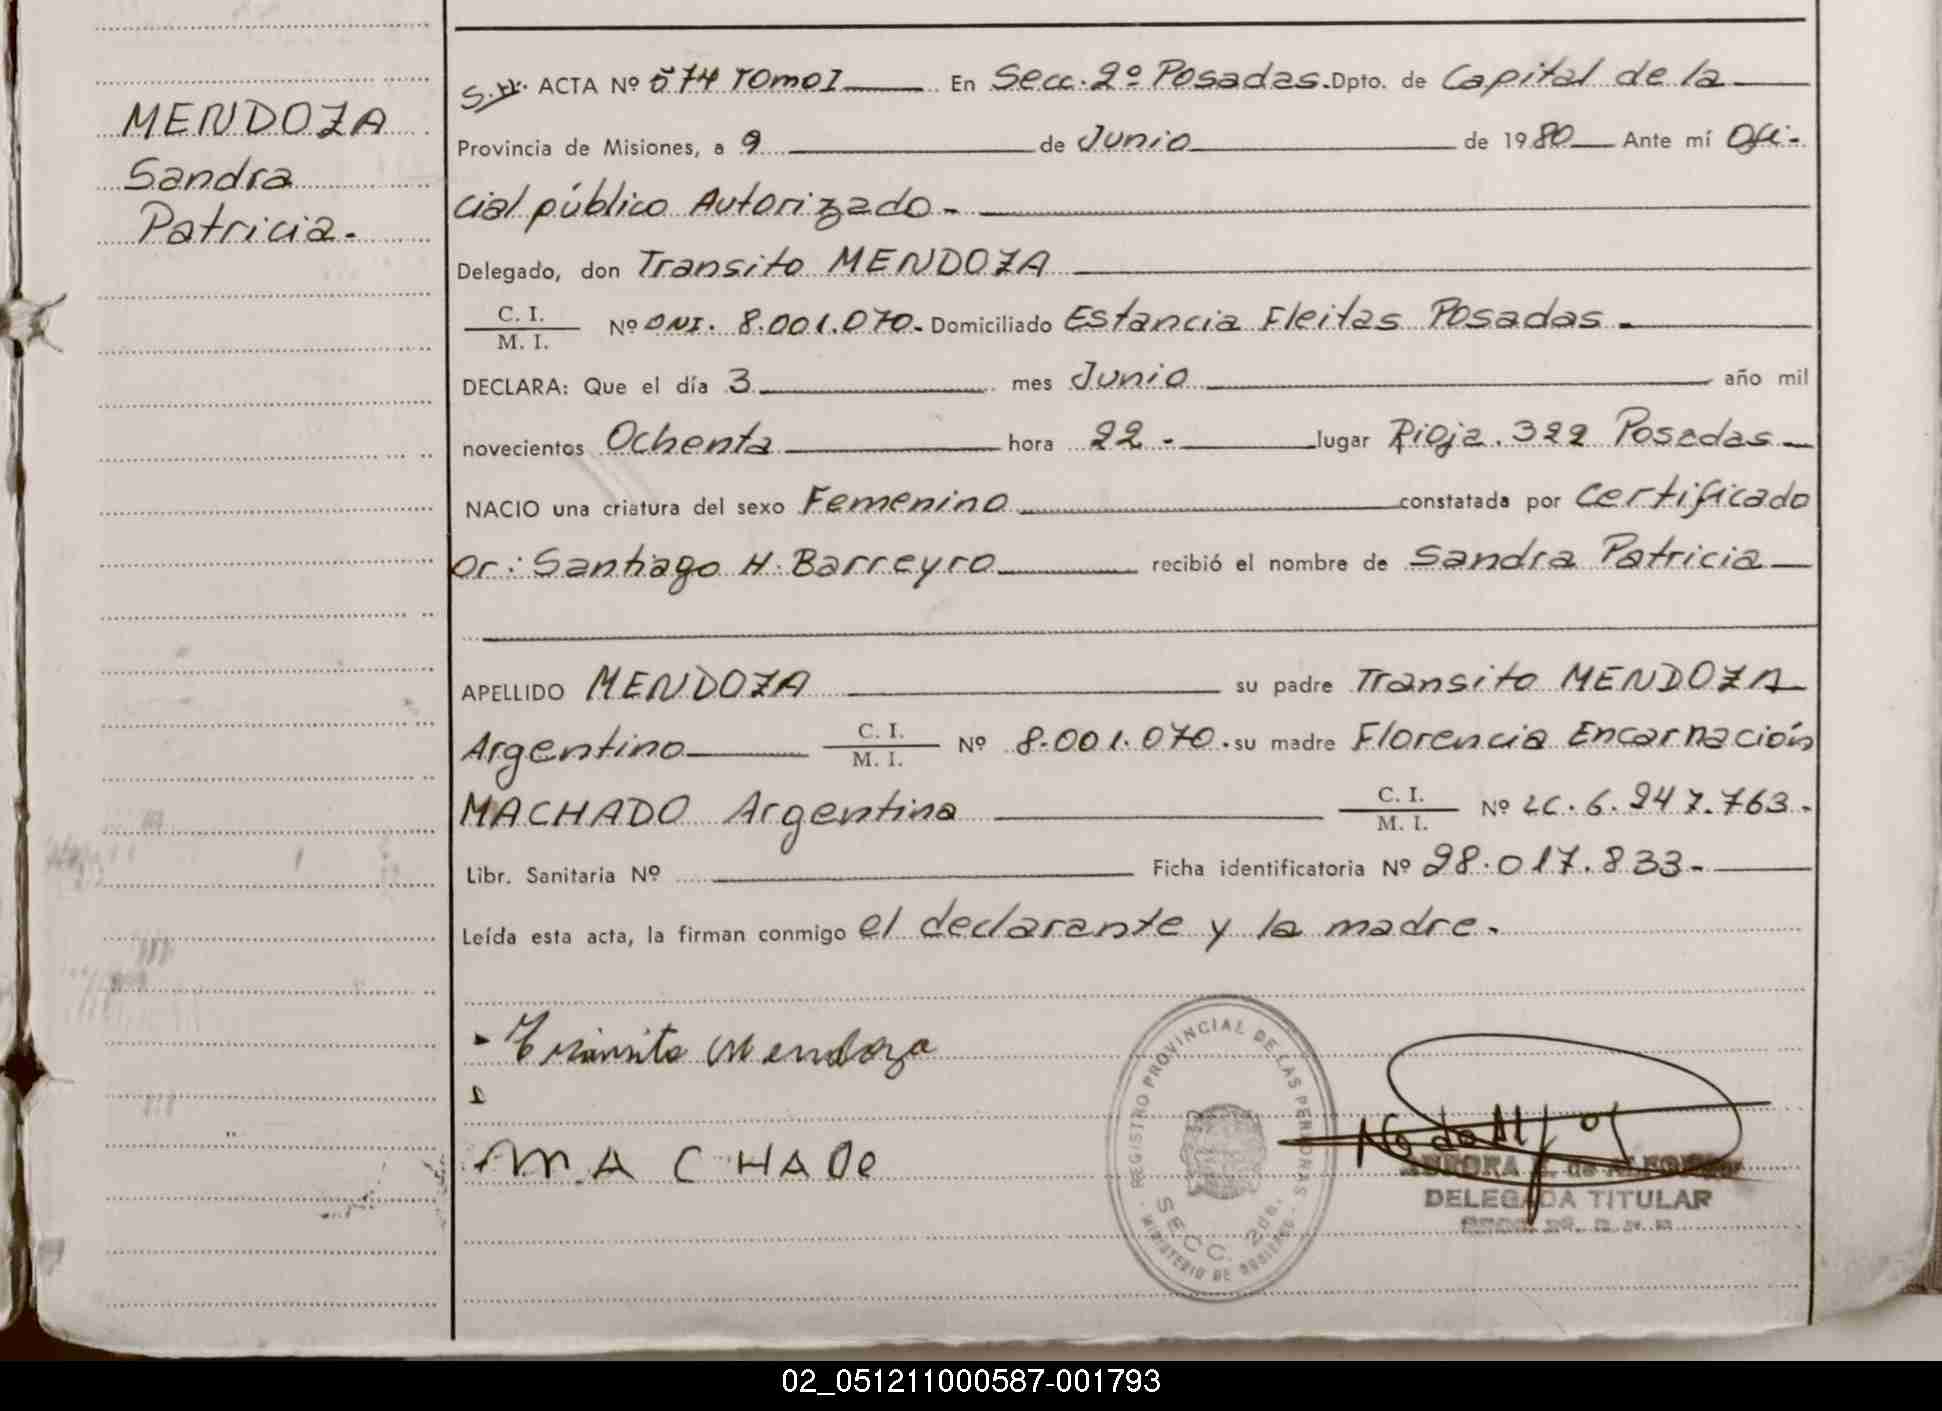 MENDOZA
Sandra
Patricia.
ACTA Nº 574 Tomo I En Secc. 2º Posadas. Dpto. de Capital de la
Provincia de Misiones, a 9 de Junio de 1980 Ante mí Ofi-
cial público Autorizado-
Delegado, don Transito MENDOZA
C. I.
M. I. Nº DNI. 8.001.070. Domiciliado Estancia Fleitas Posadas.
DECLARA: Que el día 3 mes Junio año mil
novecientos Ochenta hora 22- lugar Rioja. 322 Posadas
NACIO una criatura del sexo Femenino constatada por Certificado
Dr: Santiago H. Barreyro recibió el nombre de Sandra Patricia
APELLIDO MENDOZA su padre Transito MENDOZA
Argentino C. I. M. I. Nº 8.001.070. su madre Florencia Encarnación
MACHADO Argentina C. I. M. I. Nº LC. 6.247.763.
Libr. Sanitaria Nº Ficha identificatoria Nº 28.017.833-
Leída esta acta, la firman conmigo el declarante y la madre.
Tránsito Mendoza
MACHADO
REGISTRO PROVINCIAL DE LAS PERSONAS
SECC. 2da.
MINISTERIO DE GOBIERNO
DELEGADA TITULAR
02_051211000587-001793